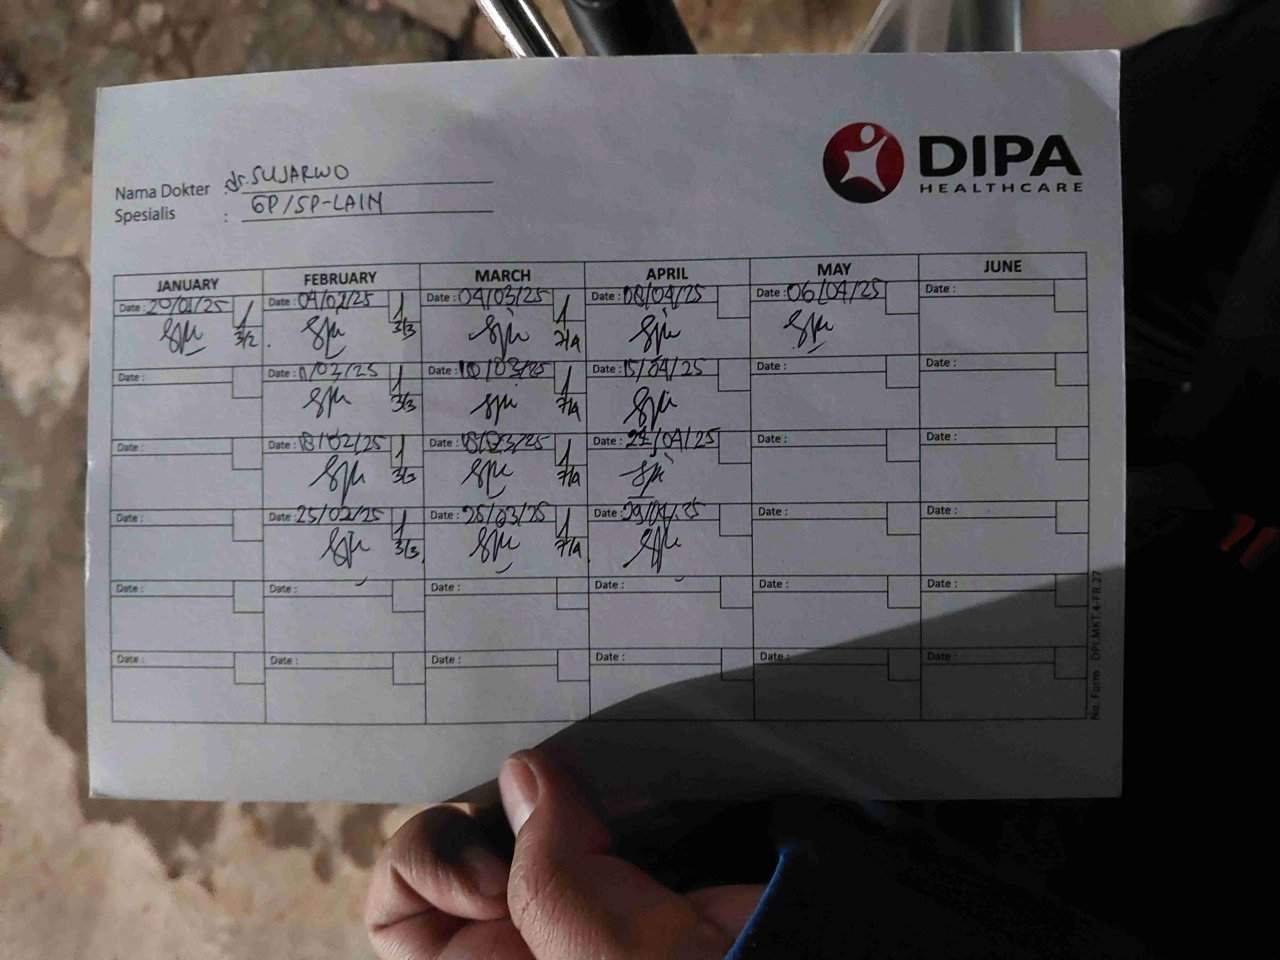 DIPA
HEALTHCARE
Nama Dokter : dr. SUJARWO
Spesialis : GP/SP-LAIN
JANUARY FEBRUARY MARCH APRIL MAY JUNE
Date : 20/01/25 Date : 04/02/25 Date : 04/03/25 Date : 08/04/25 Date : 06/04/25 Date :
3/2 3/3 7/4
Date : Date : 11/03/25 Date : 10/03/25 Date : 15/04/25 Date : Date :
3/3 7/4
Date : Date : 18/02/25 Date : 18/03/25 Date : 22/04/25 Date : Date :
3/3 7/4
Date : Date : 25/02/25 Date : 25/03/25 Date : 29/04/25 Date : Date :
3/3 7/4
Date : Date : Date : Date : Date : Date :
Date : Date : Date : Date : Date : Date :
No. Form : DPI.MKT.4-FR.27